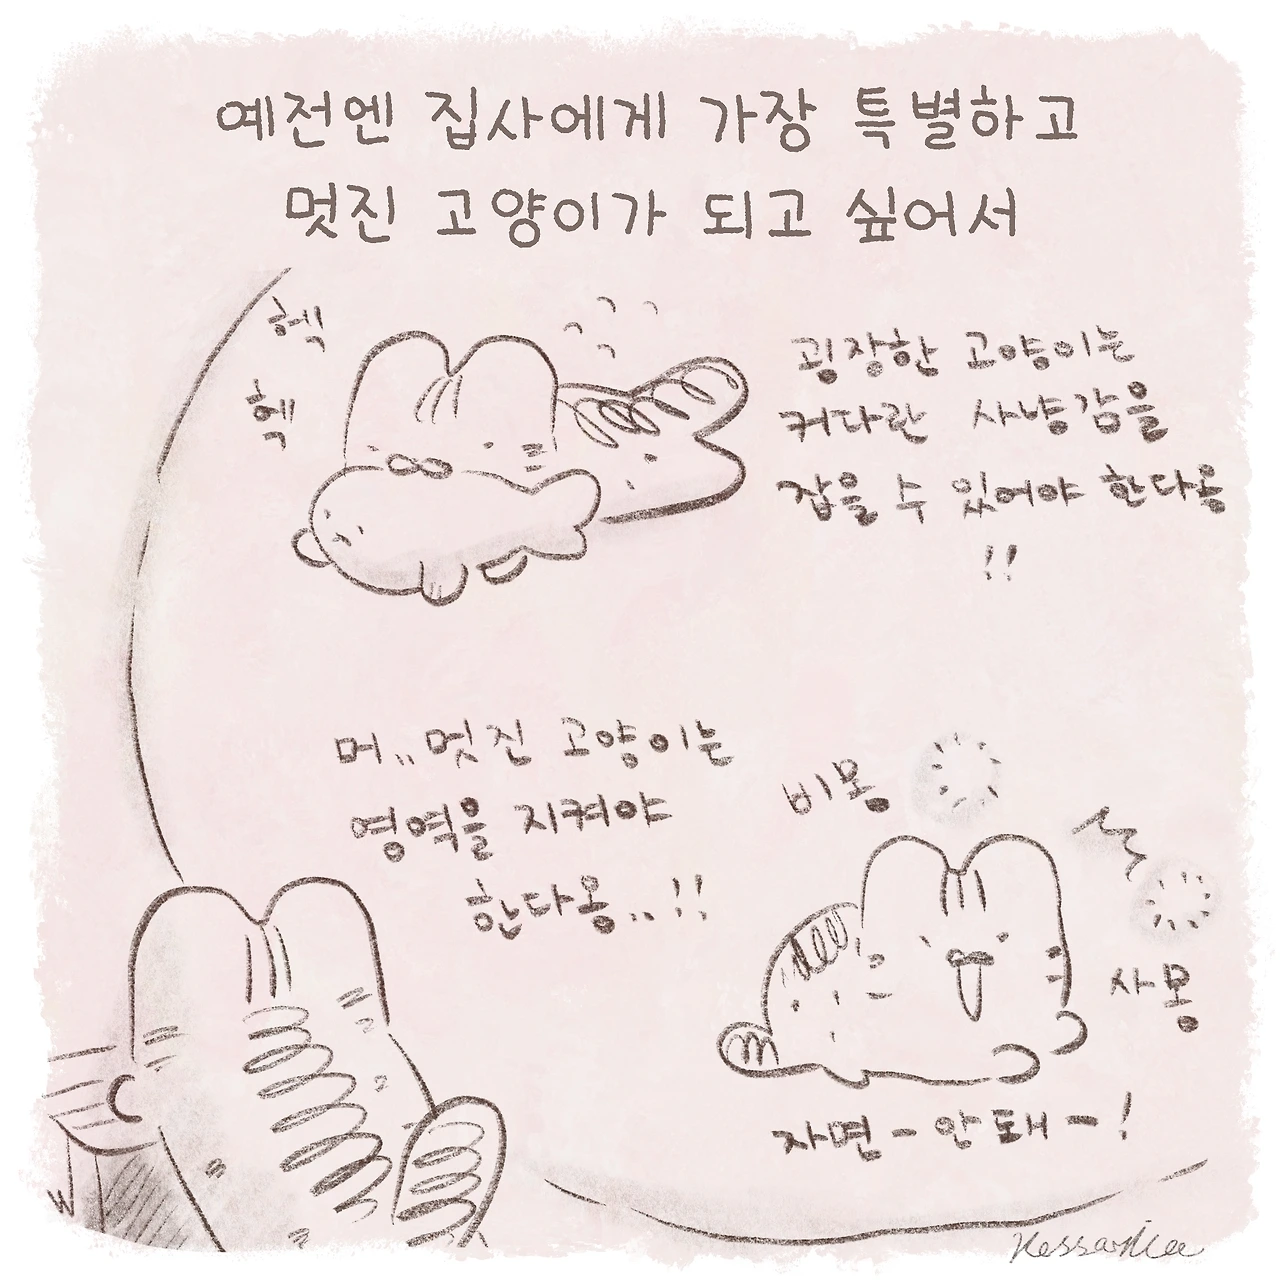 예전엔 집사에게 가장 특별하고
멋진 고양이가 되고 싶어서
헥
헥
굉장한 고양이는
커다란 사냥감을
잡을 수 있어야 한다옹
!!
머..멋진 고양이는
영역을 지켜야
한다옹..!!
비몽
사몽
자면-안돼-!